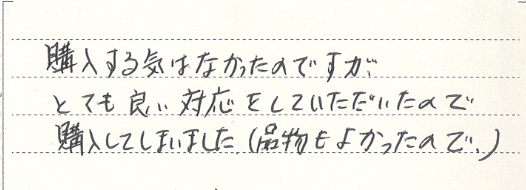 購入する気はなかったのですが、
とても良い対応をしていただいたので
購入してしまいました(品物もよかったので。)